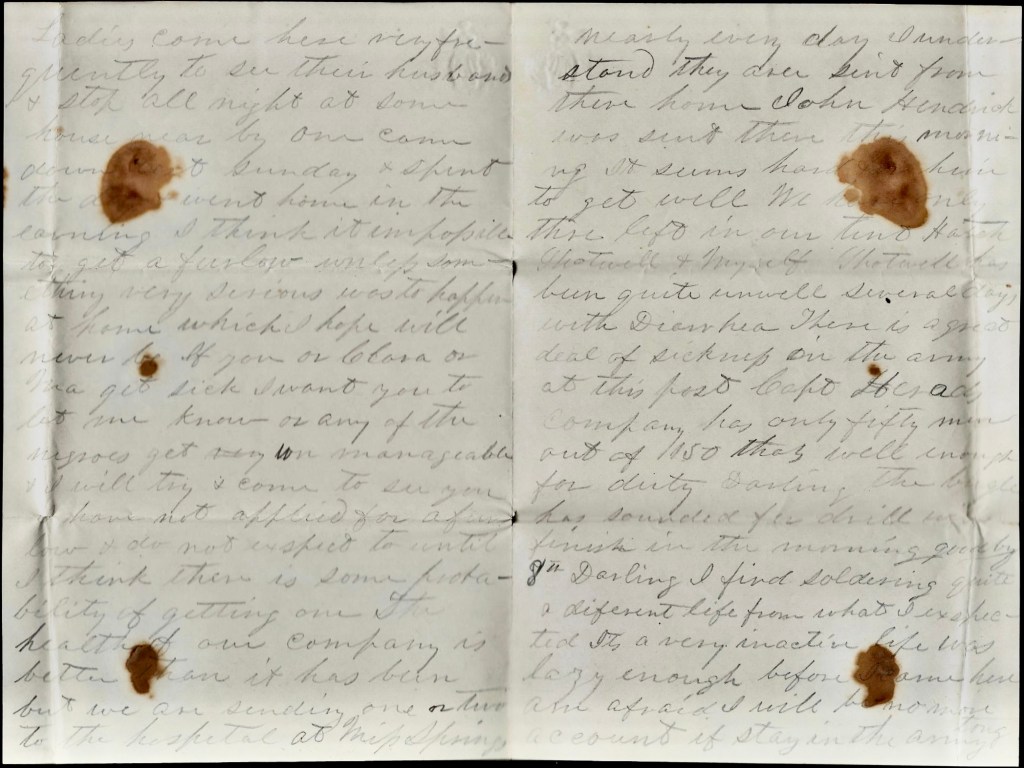 Ladies come here very fre-
quently to see their husband
& stop all night at some
house near by one came
down last Sunday & spent
the d went home in the
earning I think it impossible
to get a furlow unless som-
ething very serious was to happen
at home which I hope will
never be If you or Clara or
Ma get sick I want you to
let me know or any of the
negroes get very un manageable
& I will try & come to see you
I have not applied for a fur
low & do not exspect to until
I think there is some proba-
bility of getting one The
health of our company is
better than it has been
but we are sending one or two
to the hospital at Miss Springs
nearly every day I under-
stand they are sent from
there home John Hendrick
was sent there this morni-
ng It seems hard him
to get well We h only
three left in our tent
Shotwell & Myself Shotwell has
been quite unwell several days
with Diarrhea There is a great
deal of sickness in the army
at this post Capt
company has only fifty men
out of 150 thats well enough
for duty Darling the bugle
has sounded for drill
finish in the morning good by
8th Darling I find soldering quite
a diferent life from what I exspec-
ted Its a very inactive life was
lazy enough before I came here
am afraid I will be no more
account if stay in the army long